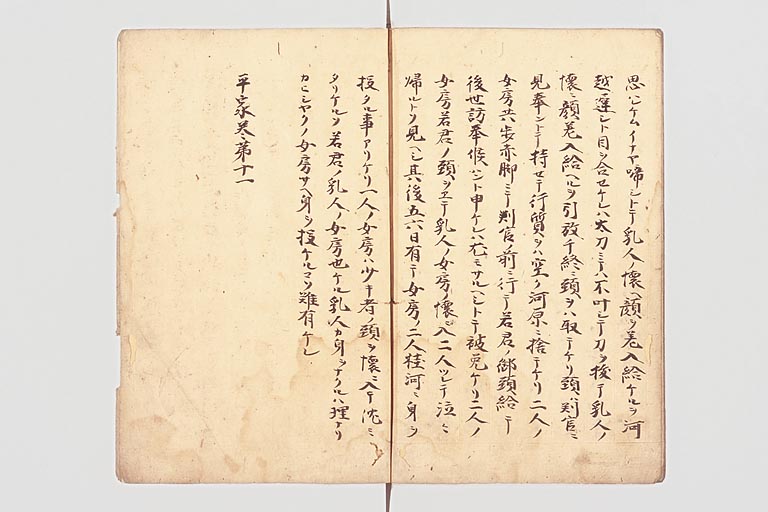 思ハレケムイナヤ啼シトテ乳人ノ懐ヘ顔ヲ差入給ケルヲ河
越遁シト目ヲ合セケレハ太刀ニテハ不叶シテ刀ヲ抜テ乳人ノ
懐ニ顔差入給ヘルヲ引放チ終ニ頭ヲハ取テケリ頭ハ判官ニ
見奉ントテ持セテ行質ヲハ空ク河原ニ捨テケリ二人ノ
女房共歩赤脚ニテ判官ノ前ニ行テ若君ノ御頭給テ
後世訪奉候ハント申ケレハ尤モサルヘシトテ被免ケリ二人ノ
女房若君ノ頭ヲヱテ乳人ノ女房ノ懐ニ入二人ツレテ泣々
帰ルトソ見ヘシ其後五六日有テ女房ノ二人桂河ニ身ヲ
投タル事アリケリ一人ノ女房ハ少キ者ノ頭ヲ懐ニ入テ沈ミ
タリケルソ若君ノ乳人ノ女房也ケル乳人カ身ヲナクルハ理ナリ
カヒシヤクノ女房サヘ身ヲ投ケルコソ難有ケレ
平家巻第十一